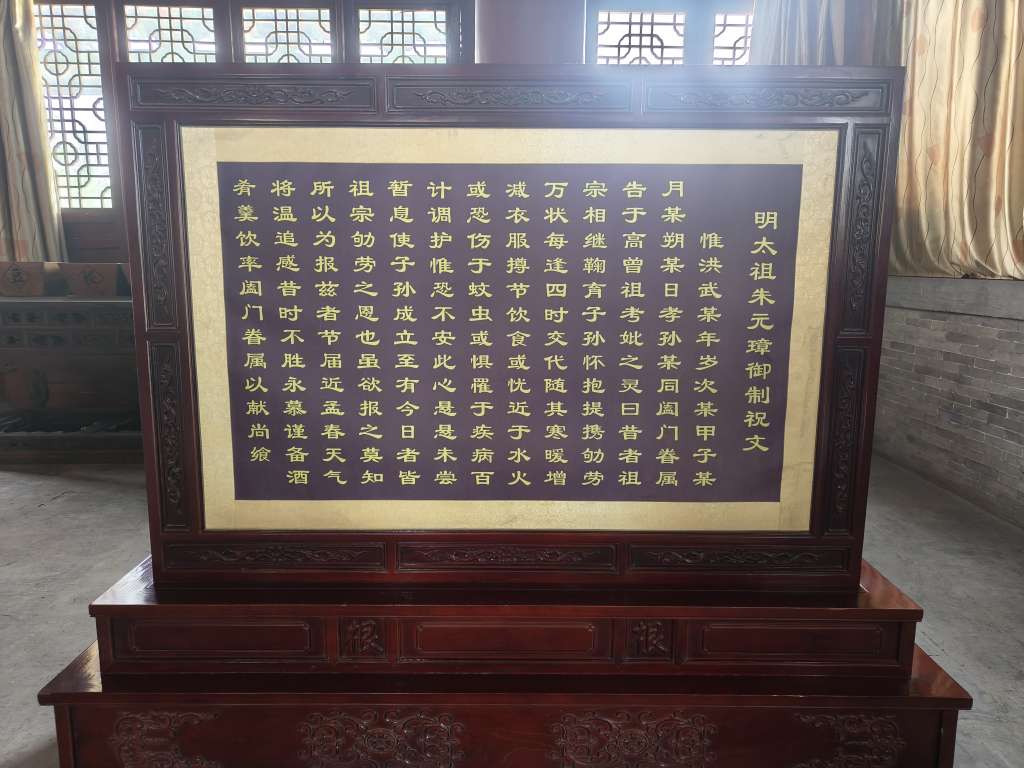 明太祖朱元璋御制祝文
惟洪武某年岁次某甲子某
月某朔某日孝孙某同阖门眷属
告于高曾祖考妣之灵曰昔者祖
宗相继鞠育子孙怀抱提携劬劳
万状每逢四时交代随其寒暖增
减衣服撙节饮食或忧近于水火
或恐伤于蚊虫或惧罹于疾病百
计调护惟恐不安此心悬悬未尝
暂息使子孙成立至有今日者皆
祖宗劬劳之恩也虽欲报之莫知
所以为报兹者节届近孟春天气
将温追感昔时不胜永慕谨备酒
肴羹饮率阖门眷属以献尚飨